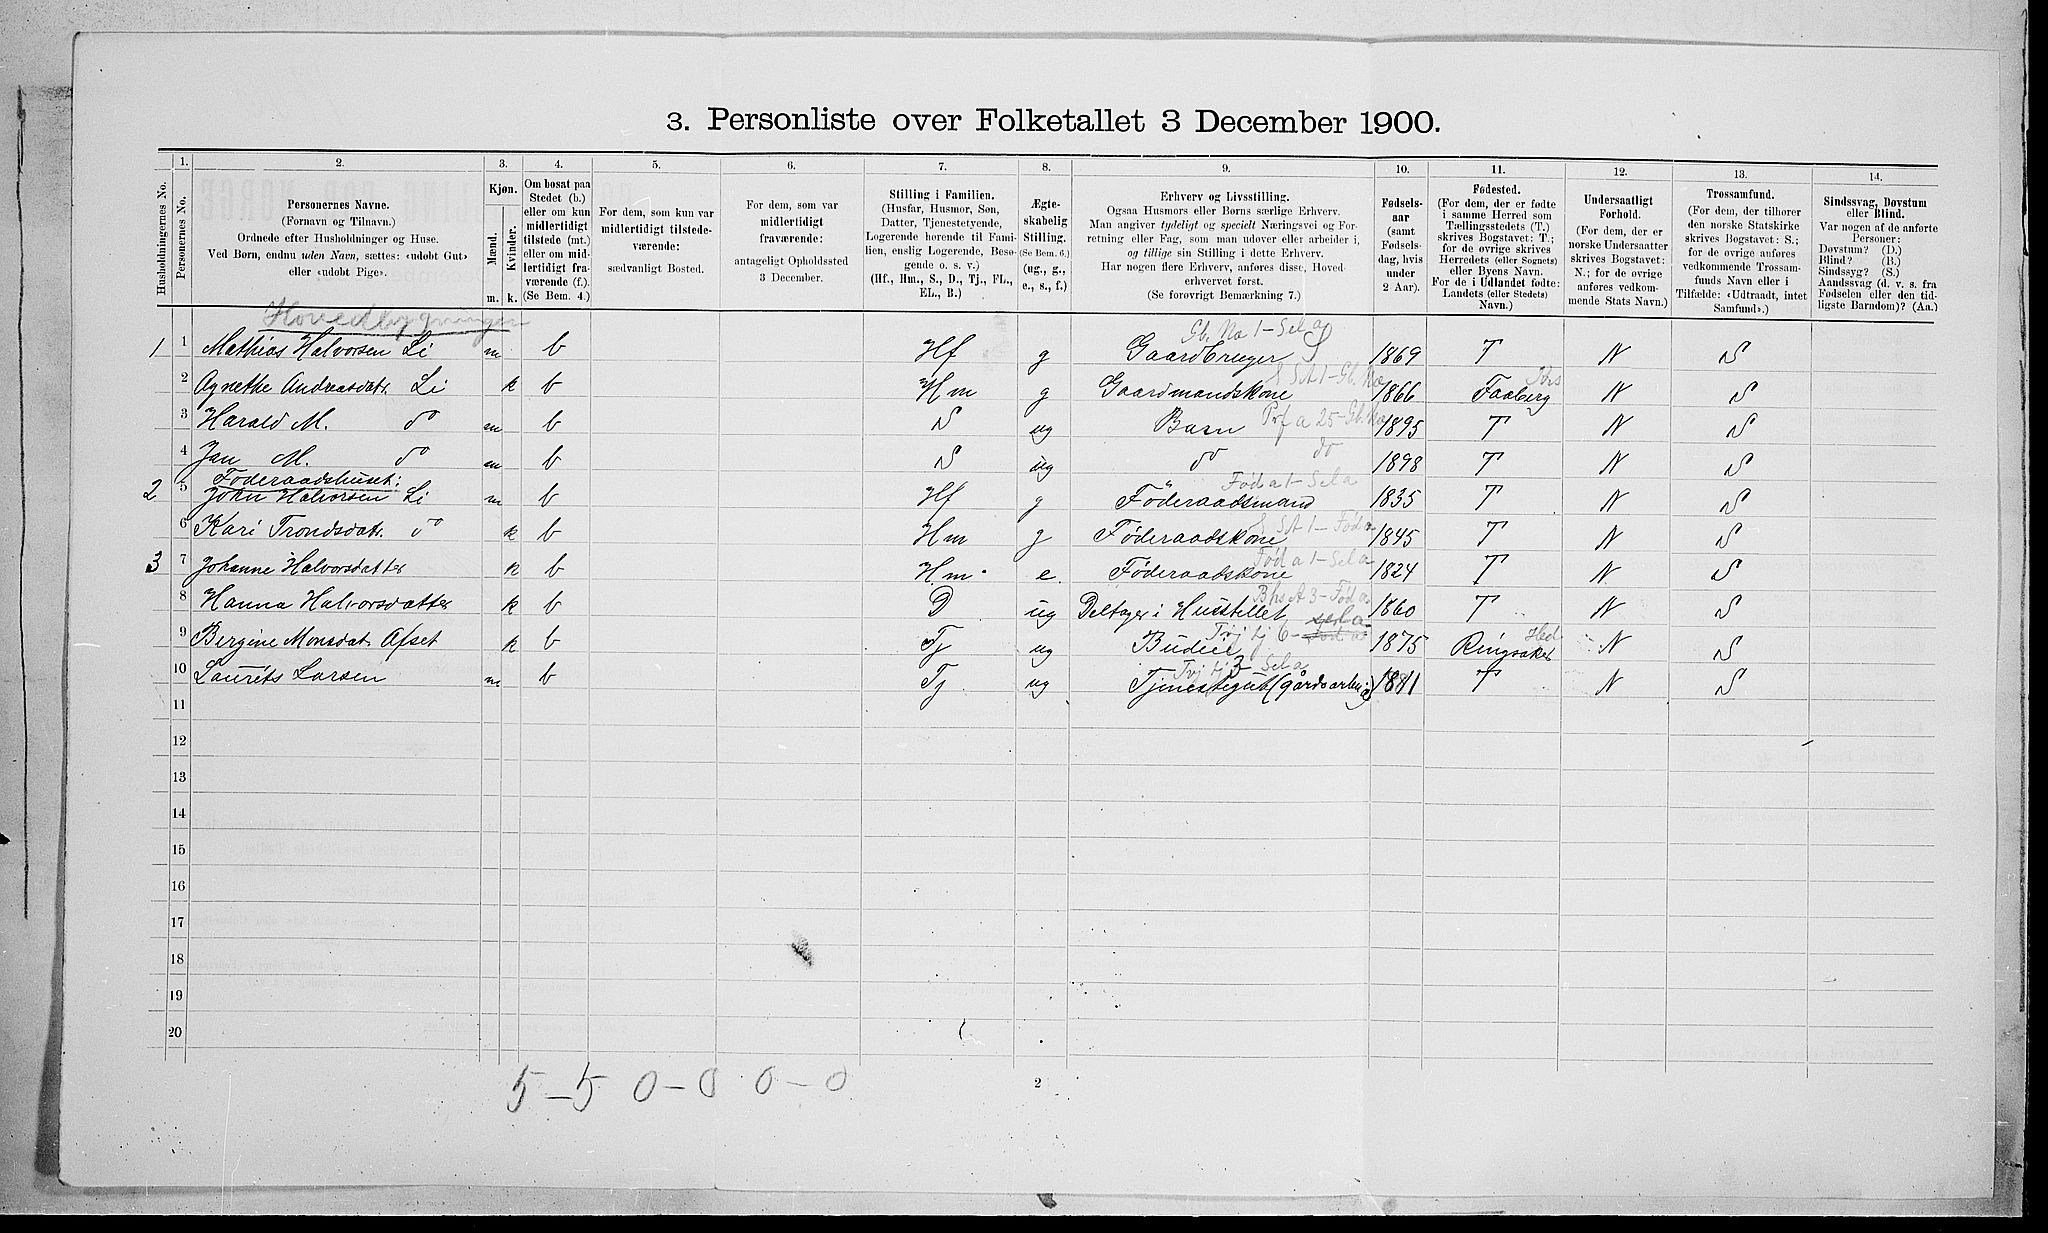 3. Personliste over Folketallet 3 December 1900.
Husholdningernes No.
1.
Personernes No.
2.
Personernes Navne.
(Fornavn og Tilnavn.)
Ordnede efter Husholdninger og Huse.
Ved Børn, endnu uden Navn, sættes: «udobt Gut»
eller «udobt Pige».
3.
Kjøn.
Mænd.
Kvinder.
m. k.
4.
Om bosat paa
Stedet (b.)
eller om kun
midlertidigt
tilstede (mt.)
eller om mid-
lertidigt fra-
værende (f.).
(Se Bem. 4.)
5.
For dem, som kun var
midlertidigt tilstede-
værende:
sædvanligt Bosted.
6.
For dem, som var
midlertidigt
fraværende:
antageligt Opholdssted
3 December.
7.
Stilling i Familien.
(Husfar, Husmor, Søn,
Datter, Tjenestetyende,
Logerende hørende til Fami-
lien, enslig Logerende, Besø-
gende o. s. v.)
(Hf., Hm., S., D., Tj., FL.,
EL., B.)
8.
Ægte-
skabelig
Stilling.
(Se Bem. 6.)
(ug., g.,
e., s., f.)
9.
Erhverv og Livsstilling.
Ogsaa Husmors eller Børns særlige Erhverv.
Man angiver tydeligt og specielt Næringsvei og For-
retning eller Fag, som man udover eller arbeider i,
og tillige sin Stilling i dette Erhverv.
Har nogen flere Erhverv, anføres disse, Hoved-
erhvervet først.
(Se forøvrigt Bemærkning 7.)
10.
Fødsels-
aar
(samt
Fødsels-
dag, hvis
under
2 Aar).
11.
Fødested.
(For dem, der er fødte
i samme Herred som
Tællingsstedets (T.)
skrives Bogstavet: T.;
for de øvrige skrives
Herredets (eller Sognets)
eller Byens Navn.
For de i Udlandet fødte:
Landets (eller Stedets)
Navn.)
12.
Undersaatligt
Forhold.
(For dem, der er
norske Undersaatter
skrives Bogstavet:
N.; for de øvrige
anføres vedkom-
mende Stats Navn.)
13.
Trossamfund.
(For dem, der tilhører
den norske Statskirke
skrives Bogstavet: S.;
for de øvrige anføres
vedkommende Trossam-
funds Navn eller i
Tilfælde: «Udtraadt, intet
Samfund».)
14.
Sindssvag, Døvstum
eller Blind.
Var nogen af de anførte
Personer:
Døvstum? (D.)
Blind? (B.)
Sindssyg? (S.)
Aandssvag (d. v. s. fra
Fødselen eller den tid-
ligste Barndom)? (Aa.)
Hovedbygningen
Gb. No 1 - Sel a
1 1 Mathias Halvorsen Li m b Hf g Gaardbruger 1869 T N S
2 Agnethe Andreasdatr. Li k b Hm g Gaardmandskone 1866 Faaberg N S
3 Harald M. do m b S ug Barn 1895 T N S
4 Jan M. do m b S ug do do 1898 T N S
Föderaadshuset:
Fød a 1 - Sel a
2 5 John Halvorsen Li m b Hf g Föderaadsmand 1835 T N S
6 Kari Trondsdatr. do k b Hm g Føderaadskone 1845 T N S
Fød a 1 - Sel a
3 7 Johanne Halvorsdatter k b Hm. e. Føderaadskone 1824 T N S
8 Hanna Halvorsdatter k b D ug Deltager i Husstellet 1860 T N S
9 Bergine Monsdat. Afset k b Tj ug Budeie 1875 Ringsaker Hed N S
10 Laurits Larsen m b Tj ug Tjenestegut (gårdsarbeide) 1881 T N S
11
12
13
14
15
16
17
18
19
20
5 - 5 0 - 0 0 - 0
2